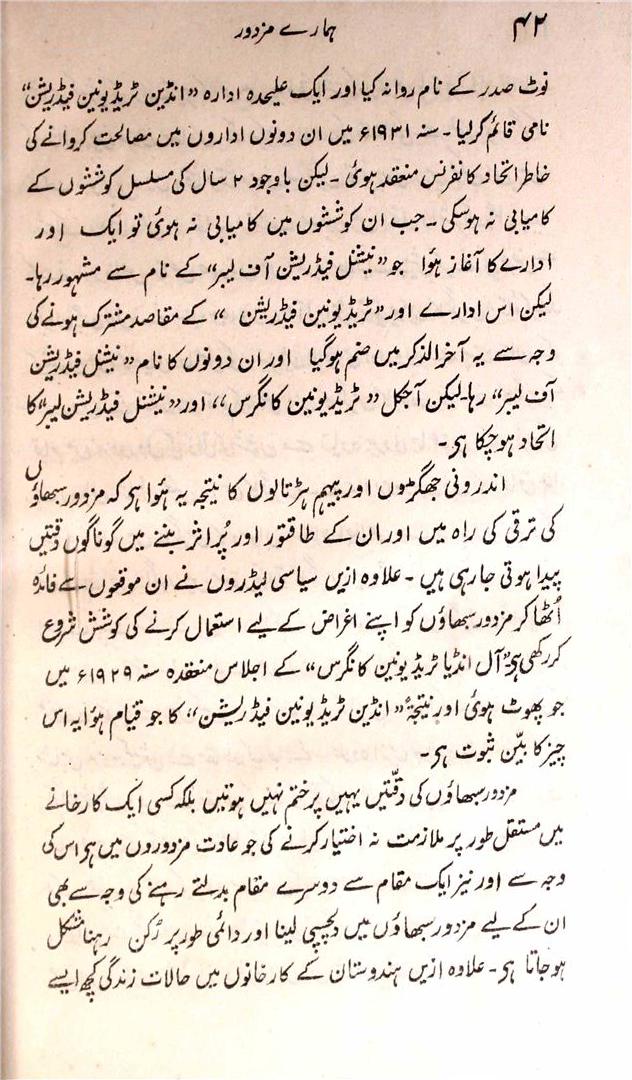 ۴۲
ہمارے مزدور
نوٹ صدر کے نام روانہ کیا اور ایک علیحدہ ادارہ ”انڈین ٹریڈ یونین فیڈریشن“
نامی قائم کر لیا۔ سنہ ۱۹۳۱ء میں ان دونوں اداروں میں مصالحت کروانے کی
خاطر اتحاد کانفرنس منعقد ہوئی۔ لیکن باوجود ۲ سال کی مسلسل کوششوں کے
کامیابی نہ ہوسکی۔ جب ان کوششوں میں کامیابی نہ ہوئی تو ایک اور
ادارے کا آغاز ہؤا جو ”نیشنل فیڈریشن آف لیبر“ کے نام سے مشہور رہا۔
لیکن اس ادارے اور ”ٹریڈ یونین فیڈریشن “ کے مقاصد مشترک ہونے کی
وجہ سے یہ آخر الذکر میں ضم ہوگیا اور ان دونوں کا نام ”نیشنل فیڈریشن
آف لیبر“ رہا۔ لیکن آجکل ”ٹریڈ یونین کانگرس“ اور ”نیشنل فیڈریشن لیبر“ کا
اتحاد ہو چکا ہی۔
اندرونی جھگڑوں اور پیہم ہڑتالوں کا نتیجہ یہ ہؤا ہی کہ مزدور سبھاؤں
کی ترقی کی راہ میں اور ان کے طاقتور اور پُر اثر بننے میں گوناگوں دقتیں
پیدا ہوتی جارہی ہیں۔ علاوہ ازیں سیاسی لیڈروں نے ان موقعوں سے فائدہ
اُٹھا کر مزدور سبھاؤں کو اپنے اغراض کے لیے استعمال کرنے کی کوشش شروع
کر رکھی ہی ”آل انڈیا ٹریڈ یونین کانگرس“ کے اجلاس منعقدہ سنہ ۱۹۲۹ء میں
جو پھوٹ ہوئی اور نتیجۃً ”انڈین ٹریڈ یونین فیڈریشن“ کا جو قیام ہؤا یہ اس
چیز کا بیّن ثبوت ہی۔
مزدور سبھاؤں کی دقّتیں یہیں پر ختم نہیں ہوتیں بلکہ کسی ایک کارخانے
میں مستقل طور پر ملازمت نہ اختیار کرنے کی جو عادت مزدوروں میں ہی اس کی
وجہ سے اور نیز ایک مقام سے دوسرے مقام بدلتے رہنے کی وجہ سے بھی
ان کے لیے مزدور سبھاؤں میں دلچسپی لینا اور دائمی طور پر رُکن رہنا مشکل
ہو جاتا ہی۔ علاوہ ازیں ہندوستان کے کارخانوں میں حالات زندگی کچھ ایسے